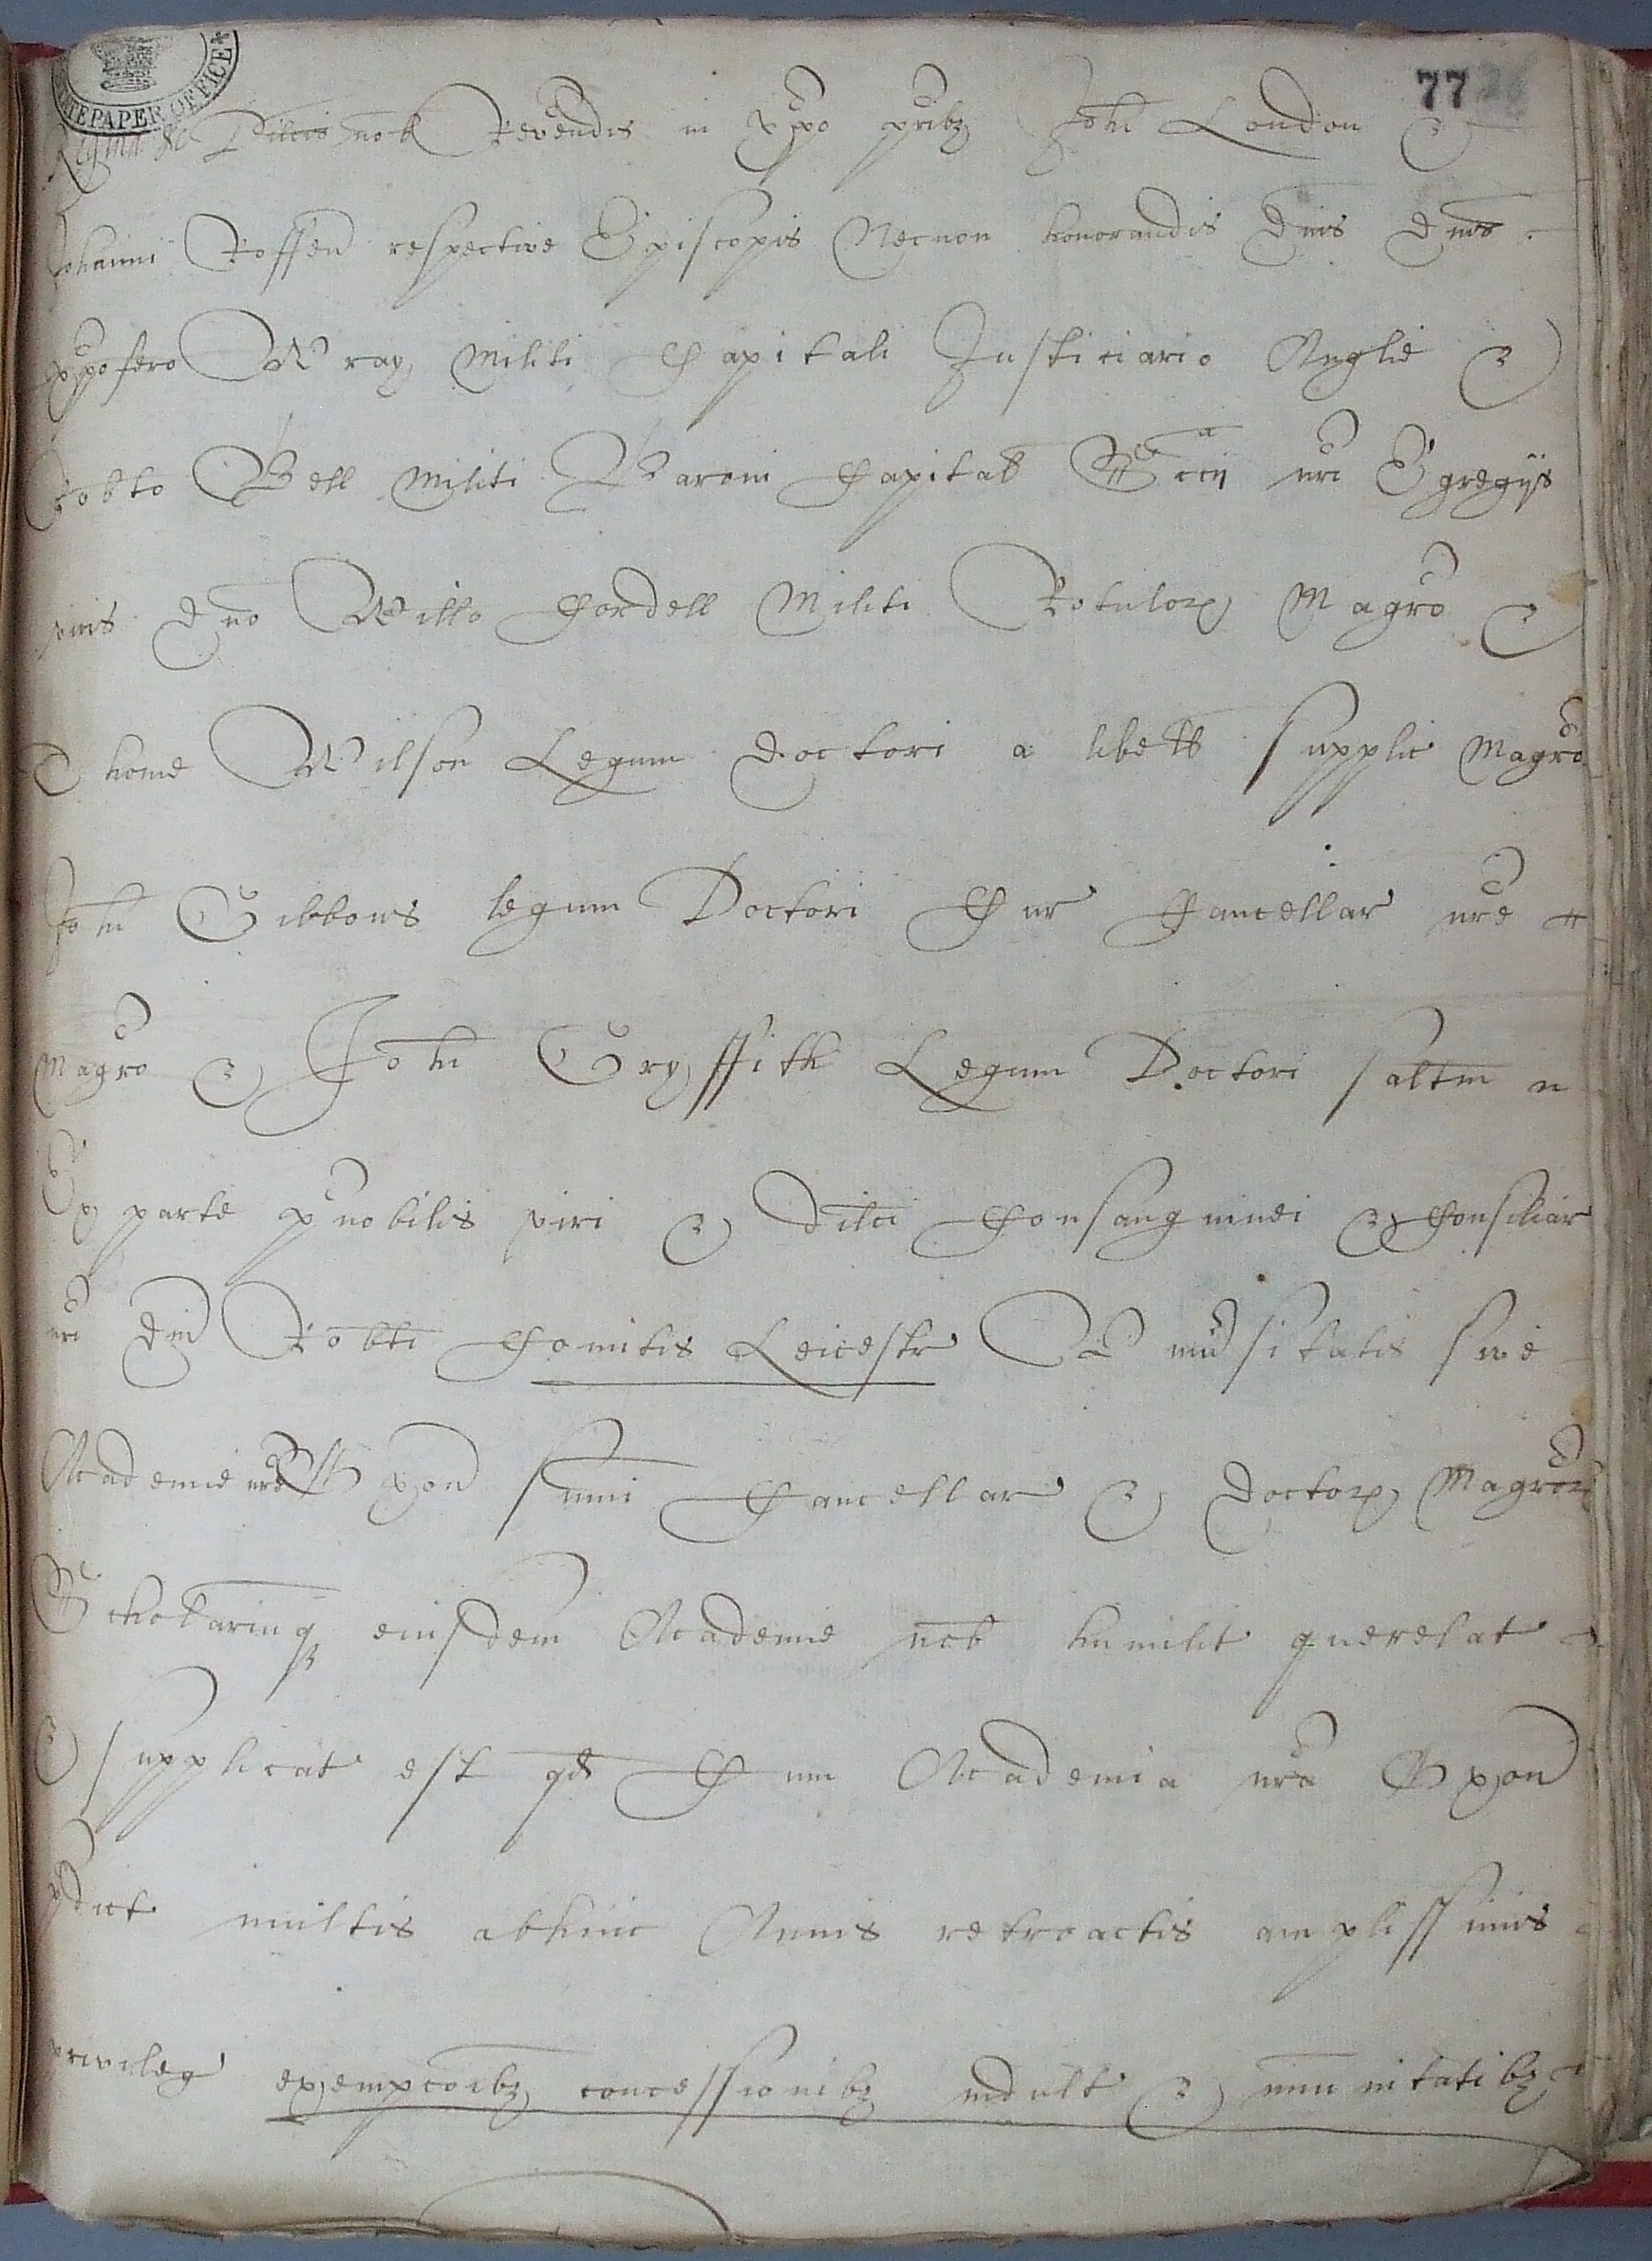 77
STATE PAPER OFFICE
Regina &c Dilcis nob Revendis in xpo pribz Johi London &
Johanni Roffen respective Episcopis Necnon honorandis dnis dnis
xpofero Wray Militi Capitali Justiciario Anglie &
Robto Bell Militi Baroni Capital Sccij nri Egregijs
viris dno Willo Cordell Militi Rotulor Magro &
Thome Wilson Legum Doctori a libell supplic Magro
Johi Gibbons legum Doctori Cur Cancellar nre
Magro & Johi Gryffith Legum Doctori saltm
Ex parte pnobilis viri & dilci Consanguinei & Consiliar
nri dni Robti Comitis Leicestr Universitatis sive
Academie nre Oxon sumi Cancellar & Doctor Magror
Scholariumq eiusdem Academie nob humilit querelat
& supplicat est qd Cum Academia nra Oxon
pdict multis abhinc Annis retroactis amplissimis
privileg exempcoibz concessionibz indult & immunitatibz